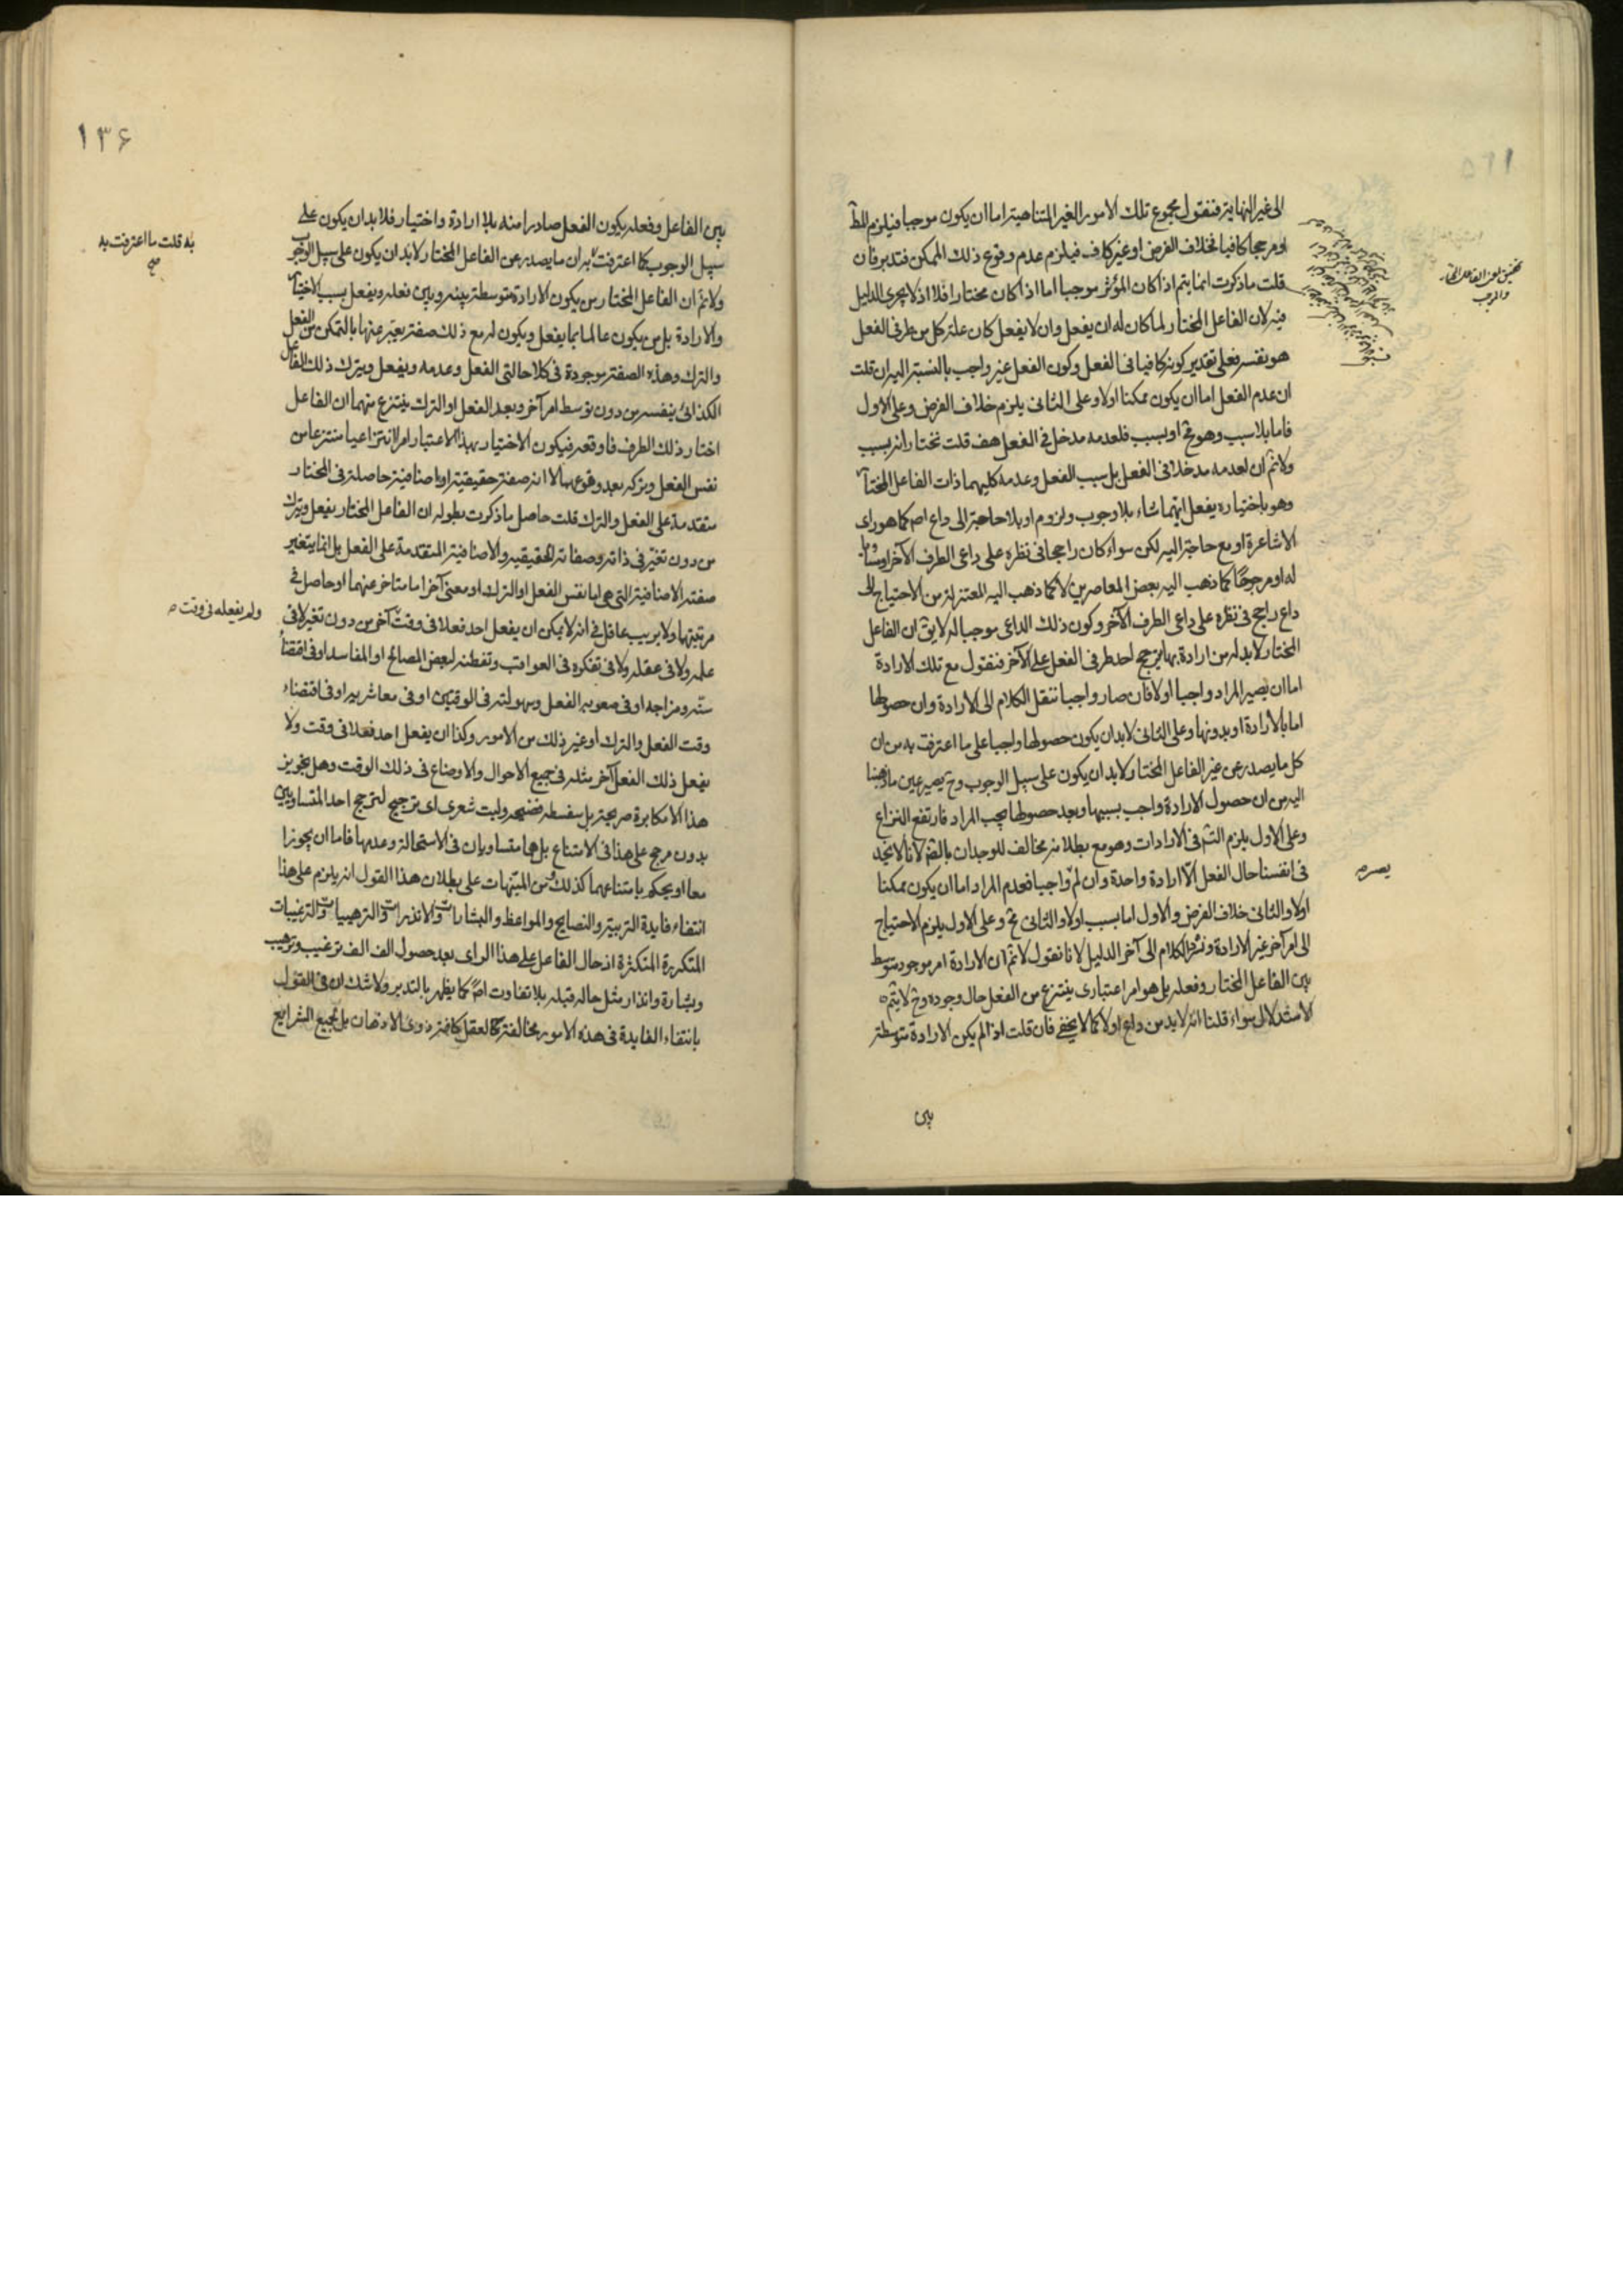 الى غير النهاية فنقول مجموع تلك الامور الغير المتناهية اما ان يكون موجبا فيلزم المط
او مرجحا كافيا بخلاف الفرض او غير كاف فيلزم عدم وقوع ذلك الممكن فتدبر فان
قلت ما ذكرت انما يتم اذا كان المؤثر موجبا اما اذا كان مختارا فلا اذ لا يجرى الدليل
فيه لان الفاعل المختار لما كان له ان يفعل وان لا يفعل كان علة كل من طرفى الفعل
هو نفسه فعلى تقدير كونه كافيا فى الفعل وكون الفعل غير واجب بالنسبة اليه ان قلت
ان عدم الفعل اما ان يكون ممكنا اولا وعلى الثانى يلزم خلاف الفرض وعلى الاول
فاما بلا سبب وهو مح او بسبب فلعدمه مدخل فى الفعل هف قلت نختار انه بسبب
ولانم ان لعدمه مدخلا فى الفعل بل سبب الفعل وعدمه كليهما ذات الفاعل المختا
وهو باختياره يفعل ايهما شاء بلا وجوب ولزوم او بلا حاجة الى داع اصم كما هو راى
الاشاعرة او مع حاجة اليه لكن سواء كان راجحا فى نظره على داعى الطرف الآخر او مساويا
له او مرجوحا كما ذهب اليه بعض المعاصرين لا كما ذهب اليه المعتزلة من الاحتياج الى
داع راجح فى نظره على داعى الطرف الآخر وكون ذلك الداعى موجبا له لا يق ان الفاعل
المختار لابد له من ارادة بها يترجح احد طرفى الفعل على الآخر فنقول مع تلك الارادة
اما ان يصير المراد واجبا اولا فان صار واجبا ننقل الكلام الى الارادة وان حصولها
اما بالارادة او بدونها وعلى الثانى لابد ان يكون حصولها واجبا على ما اعترفت به من ان
كل ما يصدر عن غير الفاعل المختار لابد ان يكون على سبيل الوجوب وح يصير عين ما ذهبنا
اليه من ان حصول الارادة واجب بسببها وبعد حصولها يجب المراد فارتفع النزاع
وعلى الاول يلزم التس فى الارادات وهو مع بطلانه مخالف للوجدان بالضرلانا لا نجد
فى انفسنا حال الفعل الا ارادة واحدة وان لم واجبا فعدم المراد اما ان يكون ممكنا
يصره
اولا والثانى خلاف الفرض والاول اما بسبب اولا والثانى مح وعلى الاول يلزم الاحتياج
الى امر آخر غير الارادة ونسوق الكلام الى آخر الدليل لانا نقول لانم ان الارادة امر موجود متوسط
بين الفاعل المختار وفعله بل هو امر اعتبارى ينتزع من الفعل حال وجوده وح لا يتم
الاستدلال سواء قلنا انه لابد من داع اولا كما لا يخفى فان قلت اذا لم يكن الارادة متوسطة
بين
١٣۶
بين الفاعل وفعله يكون الفعل صادرا منه بلا ارادة واختيار فلا بد ان يكون على
سبيل الوجوب كما اعترفت به ان ما يصدر عن الفاعل المختار لابد ان يكون على سبيل الوجوب
به قلت ما اعترفت به
صح
ولانم ان الفاعل المختار من يكون الارادة متوسطة بينه وبين فعله ويفعل بسبب الاختيا
والارادة بل من يكون عالما بما يفعل ويكون له مع ذلك صفة يعبر عنها بالتمكن من الفعل
والترك وهذه الصفة موجودة فى كلا حالتى الفعل وعدمه ويفعل ويترك ذلك الفاعل
الكذائى بنفسه من دون توسط امر آخر وبعد الفعل او الترك ينتزع منهما ان الفاعل
اختار ذلك الطرف فاوقعه فيكون الاختيار بهذا الاعتبار امرا انتزاعيا منتزعا من
نفس الفعل وتركه بعد وقوعهما لا انه صفة حقيقية او اضافية حاصلة فى المختار
متقدمة على الفعل والترك قلت حاصل ما ذكرت بطوله ان الفاعل المختار يفعل ويترك
من دون تغير فى ذاته وصفاته الحقيقيه والاضافية المتقدمة على الفعل بل انما يتغير
صفته الاضافية التى هى اما نفس الفعل او الترك او معنى آخر اما متاخر عنهما او حاصل فى
مرتبتهما ولا يريب عاقل فى انه لا يمكن ان يفعل احد فعلا فى وقت آخر من دون تغير لا فى
ولم يفعله فى وقت
علمه ولا فى عقله ولا فى تفكره فى العواقب وتفطنه لبعض المصالح او المفاسد او فى اقتضا
سنه ومزاجه او فى صعوبه الفعل وسهولته فى الوقتين او فى معاشريه او فى اقتضاء
وقت الفعل والترك او غير ذلك من الامور وكذا ان يفعل احد فعلا فى وقت ولا
يفعل ذلك الفعل آخر مثله فى جميع الاحوال والاوضاع فى ذلك الوقت وهل تجويز
هذا الا مكابرة صريحة بل سفسطه فضيحه وليت شعرى اى ترجيح لترجح احد المتساويين
بدون مرجح على هذا فى الامتناع بل هما متساويان فى الاستحالة وعدمها فاما ان يجوزا
معا او يحكم بامتناعهما كذلك ومن المنبهات على بطلان هذا القول انه يلزم على هذا
انتفاء فايدة التربية والنصايح والمواعظ والبشارات والانذرات والترهيبات والترغيبات
المتكررة المتكثرة اذ حال الفاعل على هذا الراى بعد حصول الف الف ترغيب وترهيب
وبشارة وانذار مثل حاله قبله بلا تفاوت اصم كما يظهر بالتدبر ولا شك ان فى القول
بانتفاء الفايدة فى هذه الامور مخالفة لعقل كافة ذوى الاذهان بل لجميع الشرايع